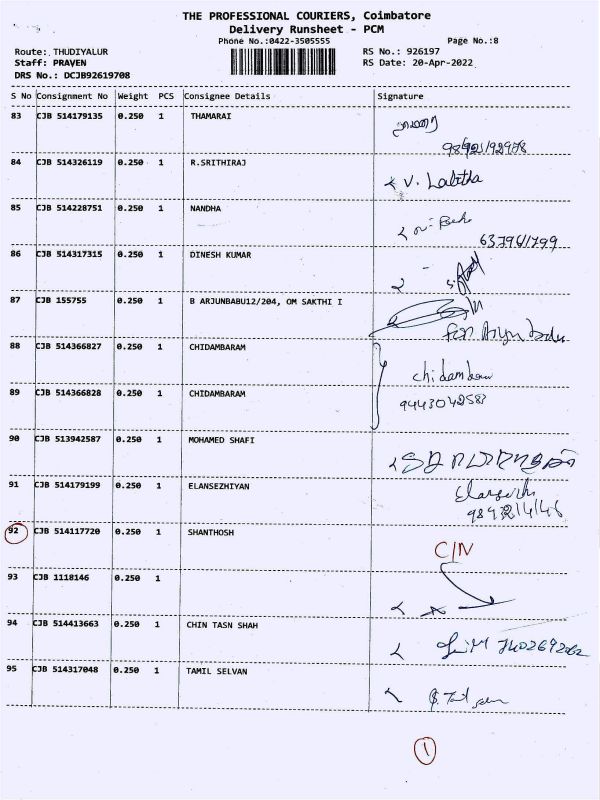 THE PROFESSIONAL COURIERS, Coimbatore
Delivery Runsheet - PCM
Phone No.:0422-3505555 Page No.:8
Route: THUDIYALUR RS No.: 926197
Staff: PRAVEN RS Date: 20-Apr-2022
DRS No.: DCJB92619708
S No Consignment No Weight PCS Consignee Details Signature
83 CJB 514179135 0.250 1 THAMARAI
84 CJB 514326119 0.250 1 R.SRITHIRAJ V. Lalitha
85 CJB 514228751 0.250 1 NANDHA
86 CJB 514317315 0.250 1 DINESH KUMAR
87 CJB 155755 0.250 1 B ARJUNBABU12/204, OM SAKTHI I
88 CJB 514366827 0.250 1 CHIDAMBARAM
89 CJB 514366828 0.250 1 CHIDAMBARAM
9443042583
90 CJB 513942587 0.250 1 MOHAMED SHAFI
91 CJB 514179199 0.250 1 ELANSEZHIYAN
92 CJB 514117720 0.250 1 SHANTHOSH C/N
93 CJB 1118146 0.250 1
94 CJB 514413663 0.250 1 CHIN TASN SHAH
95 CJB 514317048 0.250 1 TAMIL SELVAN
1